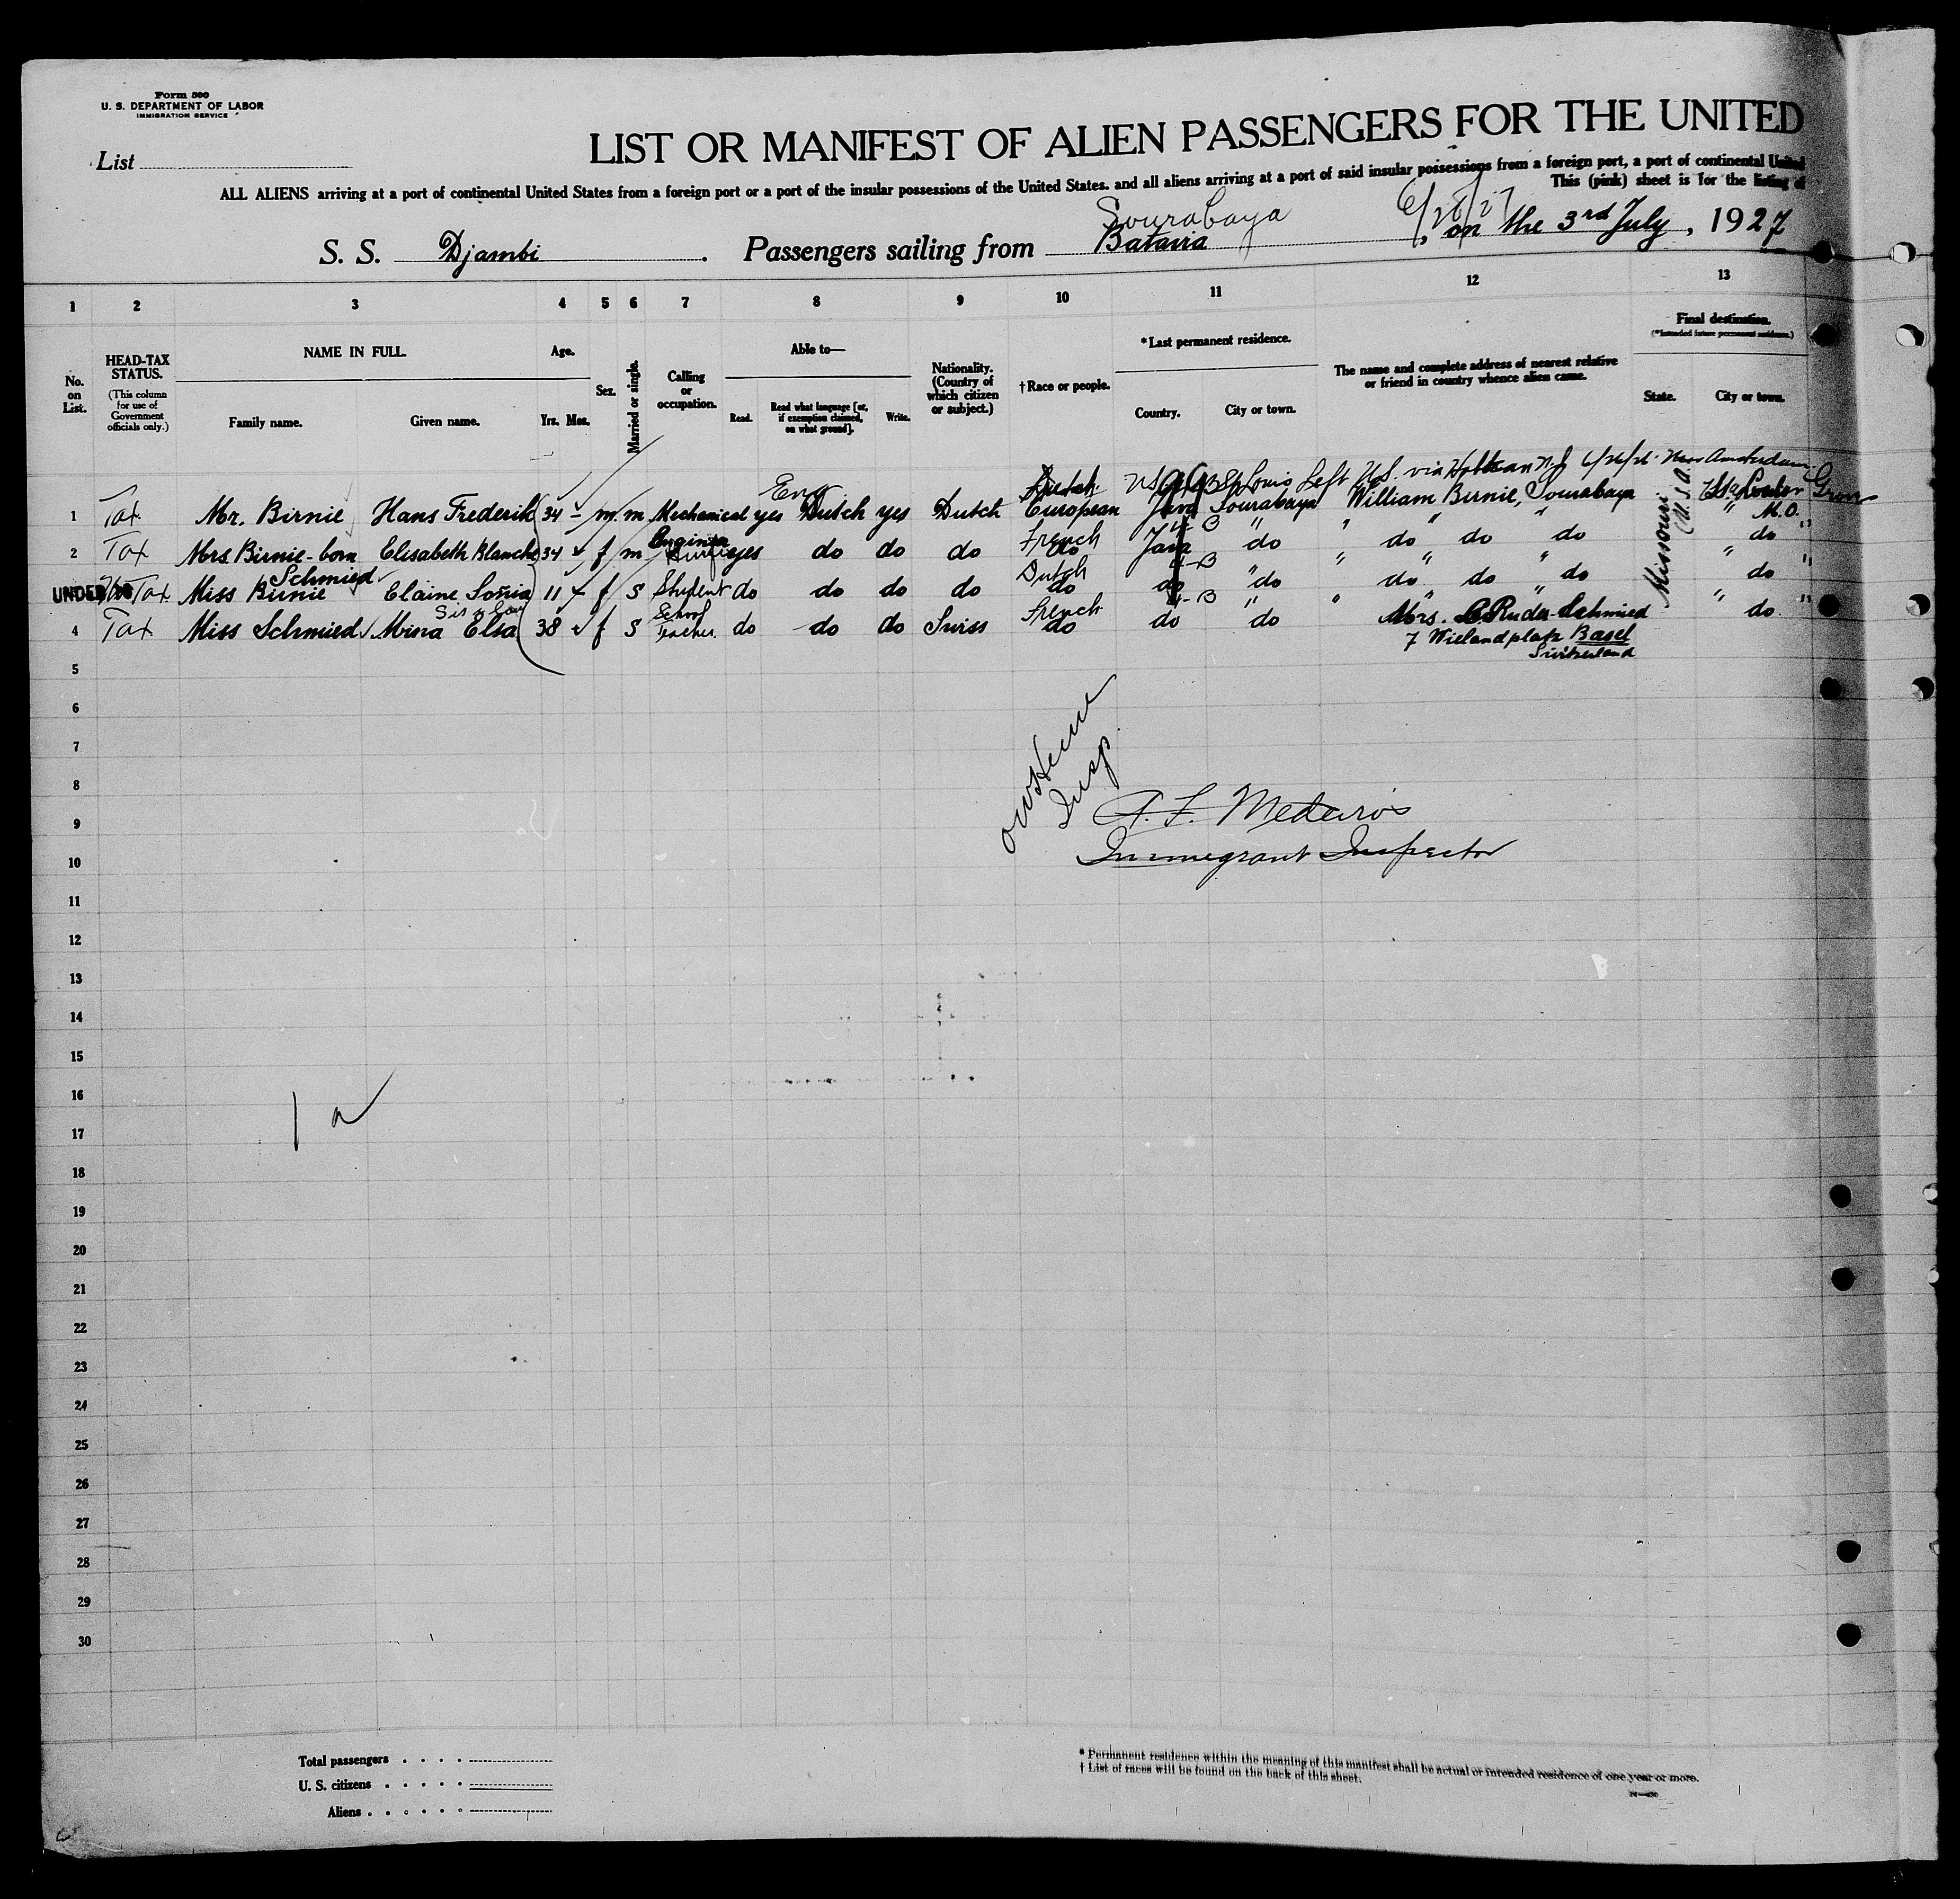 Form 500
U. S. DEPARTMENT OF LABOR
IMMIGRATION SERVICE
List
LIST OR MANIFEST OF ALIEN PASSENGERS FOR THE UNITED
ALL ALIENS arriving at a port of continental United States from a foreign port or a port of the insular possessions of the United States, and all aliens arriving at a port of said insular possessions from a foreign port, a port of continental United
This (pink) sheet is for the listing of
Sourabaya 6/26/27
S. S. Djambi. Passengers sailing from Batavia, on the 3rd July, 1927
1 2 3 4 5 6 7 8 9 10 11 12 13
HEAD-TAX STATUS. (This column for use of Government officials only.)
No. on List.
NAME IN FULL.
Family name. Given name.
Age.
Yrs. Mos.
Sex.
Married or single.
Calling or occupation.
Able to—
Read. Read what language [or, if exemption claimed, on what ground]. Write.
Nationality. (Country of which citizen or subject.)
†Race or people.
*Last permanent residence.
Country. City or town.
The name and complete address of nearest relative or friend in country whence alien came.
Final destination.
(*Intended future permanent residence.)
State. City or town.
Eng Dutch USA St Louis Left U.S. via Hoboken N.J. 6/26/26 New Amsterdam
1 Tax Mr. Birnie Hans Frederik 34 - m m Mechanical Engineer yes Dutch yes Dutch European Java Sourabaya William Birnie, Sourabaya Missouri (U.S.A.) M.O.
2 Tax Mrs. Birnie-born Schmied Elisabeth Blanche 34 f m yes do do do French do Java do do do do do
UNDER 16 Tax Miss Birnie Elaine Sonia 11 f s Student do do do do Dutch do do do do do do do
Sis n Law
4 Tax Miss Schmied Mina Elsa 38 f s School Teacher do do do Swiss French do do do Mrs. Ruder-Schmied do
7 Wielandplatz Basel
Switzerland
5
6
7
8
9
10
Insp.
A. F. Medeiros
Immigrant Inspector
11
12
13
14
15
16
17
18
19
20
21
22
23
24
25
26
27
28
29
30
Total passengers
U. S. citizens
Aliens
* Permanent residence within the meaning of this manifest shall be actual or intended residence of one year or more.
† List of races will be found on the back of this sheet.